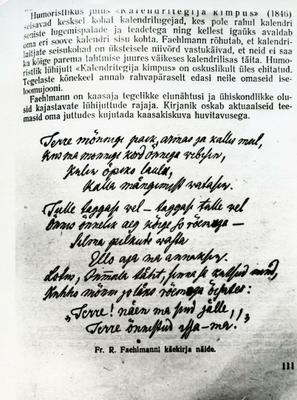 Humoristlikus jutus «Kalendritegija kimpus» (1846)
seisavad kesksel kohal kalendrilugejad, kes pole rahul kalendri
seniste lugemispalade ja teadetega ning kellest igaüks avaldab
oma eri soove kalendri sisu kohta. Faehlmann rõhutab, et kalendri-
laitjate seisukohad on üksteisele niivõrd vastukäivad, et neid ei saa
ka kõige parema tahtmise juures väikeses kalendrilisas täita. Humo-
ristlik lühijutt «Kalendritegija kimpus» on oskuslikult üles ehitatud.
Tegelaste kõnekeel annab rahvapäraselt edasi neile omaseid ise-
loomujooni.
Faehlmann on kaasaja tegelikke elunähtusi ja ühiskondlikke olu-
sid kajastavate lühijuttude rajaja. Kirjanik oskab aktuaalseid tee-
masid oma juttudes kujutada kaasakiskuva huvitavusega.
Terre mõnnega paik, armas ja kallis mul,
Kus ma monnege kord õnnega
Kulen õpeko laulu,
Kalla mängimest
Tulle taggasi vel – taggasi tulle vel
Õnnis õnnelik aeg kõige so rõemoga –
Silma pilkuks
Ello aja ma annaksin.
Lotus,
mõnno ja rõemoga
„Terre! näen ma sind jälle,
Terre õnnistud
Fr. R. Faehlmanni käekirja näide.
111